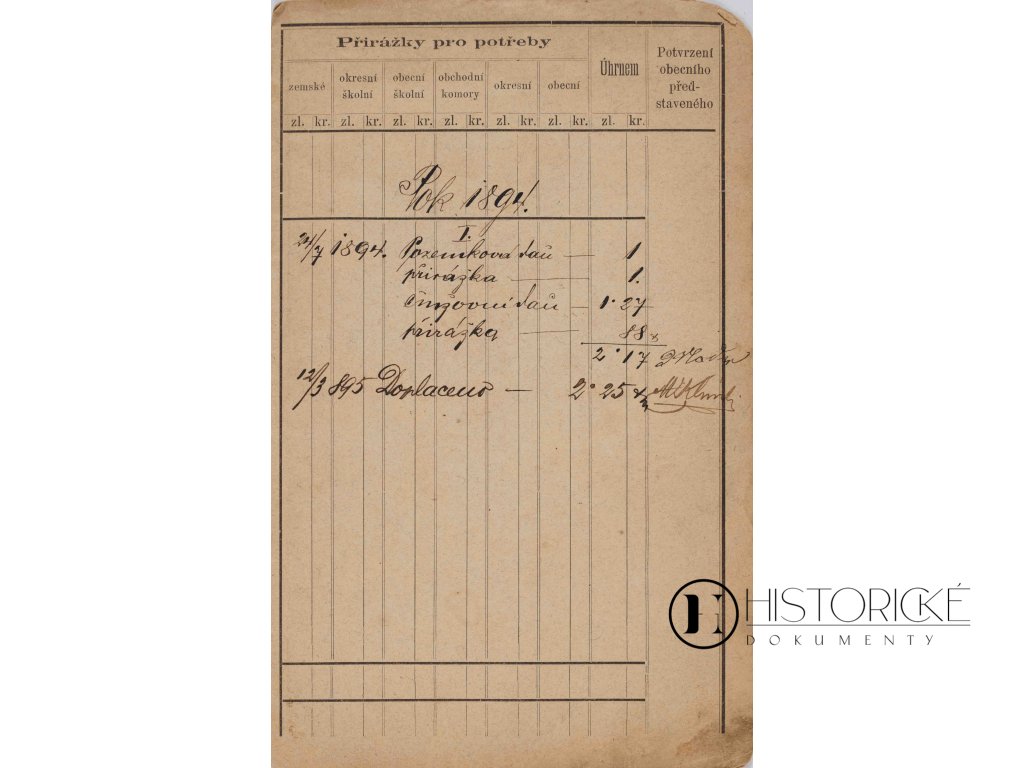 Přirážky pro potřeby
Úhrnem
Potvrzení
obecního
před-
staveného
zemské
okresní
školní
obecní
školní
obchodní
komory
okresní
obecní
zl. kr. zl. kr. zl. kr. zl. kr. zl. kr. zl. kr. zl. kr.
Rok 1894.
I.
24/7 1894. Pozemková daň — 1
přirážka — 1.
činžovní daň — 1·27
přirážka — 88
2·17
12/3 895 Doplaceno — 2·25
HISTORICKÉ
DOKUMENTY